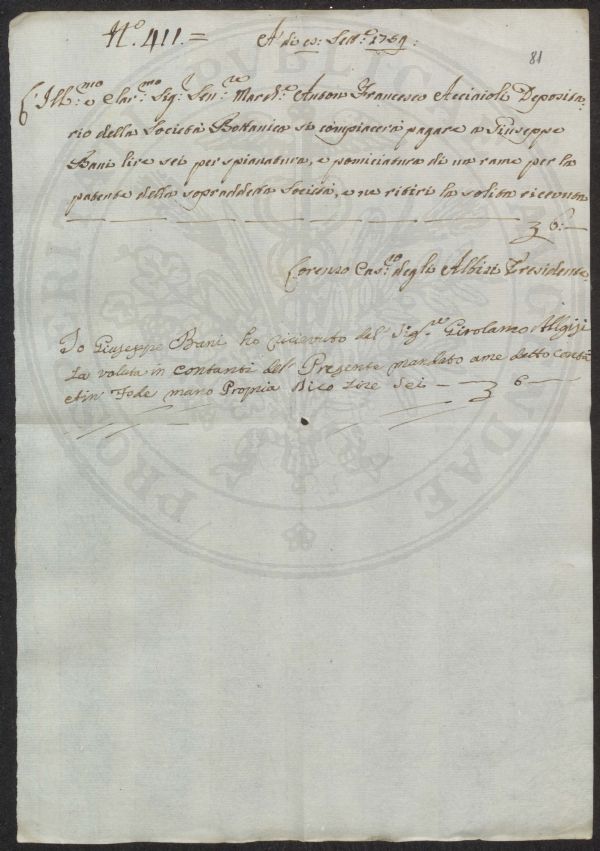 N.o 411. =
A dì Sett.e 1759:
81
Ill.mo e Clar.mo Sig.r Sen.re March.e Anton Francesco Acciaioli Deposita:
rio della Società Bottanica si compiacerà pagare a Giuseppe
Bani lire sei per spianatura, e pomiciatura di un rame per la
patente della sopraddetta Società, e ne ritiri la solita ricevuta
6:—
Lorenzo Gas.ro degli Albizi Presidente
Io Giuseppe Bani ho riceuto dal Sig.re Girolamo Aligisi
La valuta in contanti del Presente mandato a me detto
Mano Propria Dico Lire Sei — 6 —
PUBLICAE